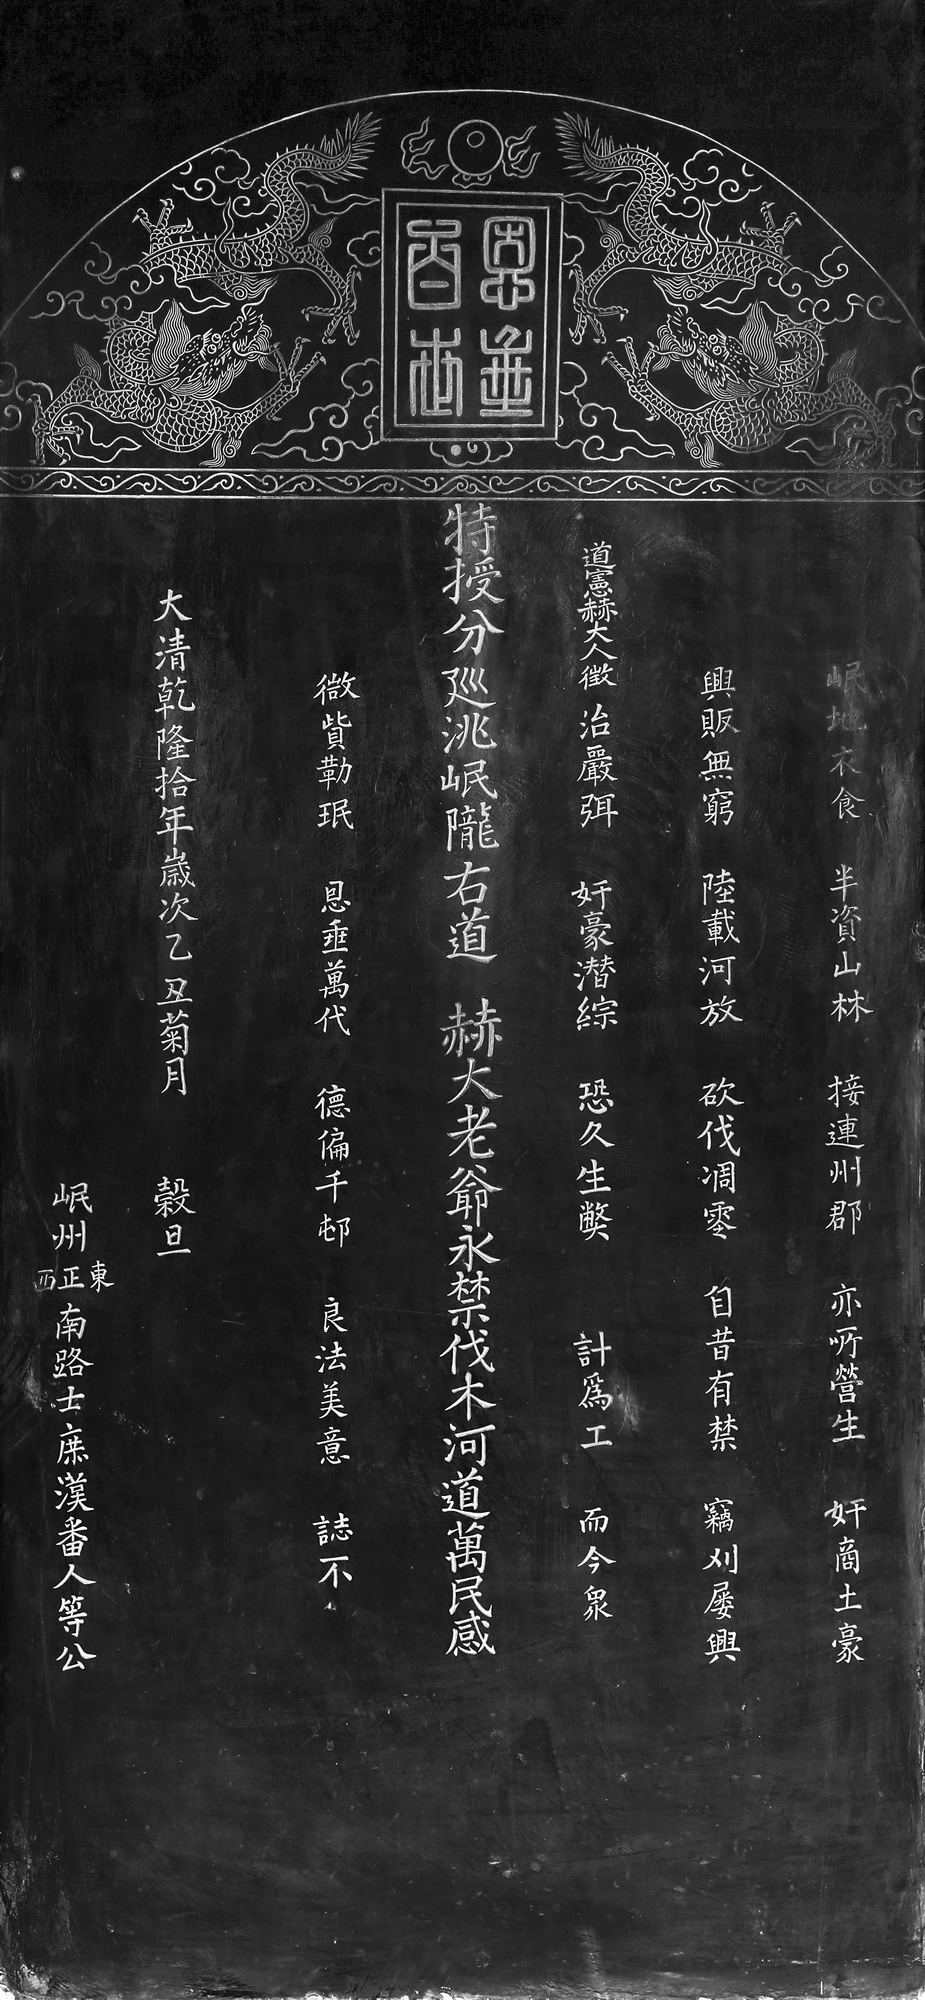 恩垂百世
岷地衣食 半資山林 接連州郡 亦所營生 奸商土豪
興販無窮 陸載河放 砍伐凋零 自昔有禁 竊刈屡興
道憲赫大人徵 治嚴弭 奸豪潛綜 恐久生獘 計爲工 而今衆
特授分廵洮岷隴右道 赫大老爺永禁伐木河道萬民感
微貲勒珉 恩垂萬代 德徧千邨 良法美意 誌不
大清乾隆拾年歲次乙丑菊月 穀旦
岷州東正西南路士庶漢番人等公